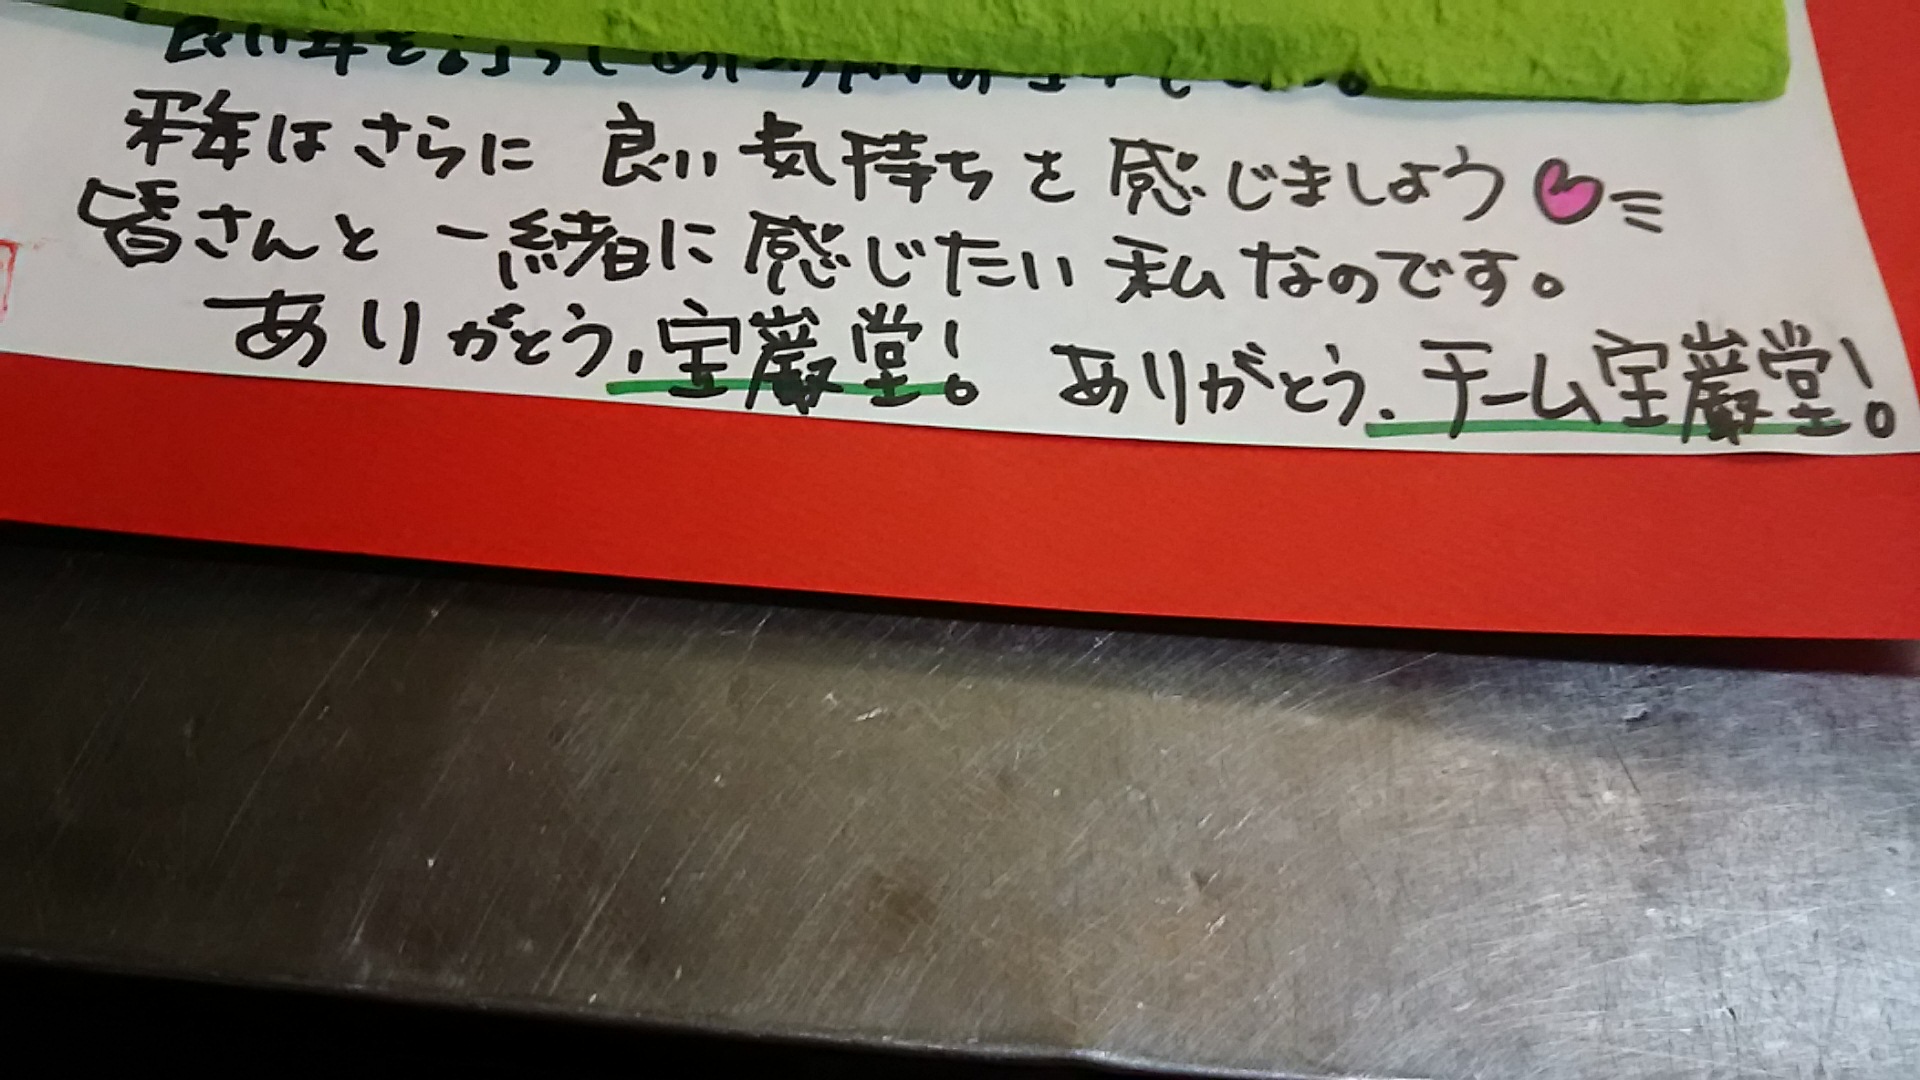 来年はさらに 良い気持ちを感じましょう
皆さんと 一緒に感じたい私なのです。
ありがとう、宝巌堂! ありがとう、チーム宝巌堂!